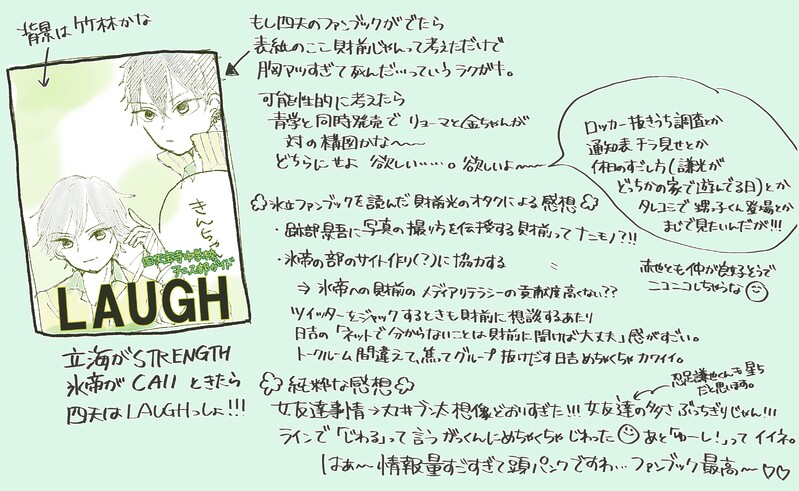 背景は竹林かな
もし四天のファンブックがでたら
表紙のここ財前じゃんって考えただけで
胸アツすぎて死んだ…っていうラクガキ。
可能性的に考えたら
青学と同時発売で リョーマと金ちゃんが
対の構図かな〜〜
どちらにせよ 欲しい……。欲しいよ〜〜
ロッカー抜きうち調査とか
通知表チラ見せとか
休日のすごし方(謙光が
どっちかの家で遊んでる日)とか
タレコミで 甥っ子くん登場とか
まじで見たいんだが!!!
きんちゃ
四天宝寺中学校
テニス部ガイド
LAUGH
立海がSTRENGTH
氷帝が CAll ときたら
四天は LAUGHっしょ!!!
氷立ファンブックを読んだ財前光のオタクによる感想
・跡部景吾に写真の撮り方を伝授する財前ってナニモノ?!!
・氷帝の部のサイト作り(?)に協力する
⇒ 氷帝への財前の メディアリテラシーの貢献度高くない??
ツイッターをジャックするときも財前に相談するあたり
日吉の「ネットで分からないことは財前に聞けば大丈夫」感がすごい。
トークルーム間違えて、焦ってグループ抜けだす日吉めちゃくちゃカワイイ。
赤也とも仲が良好そうで
ニコニコしちゃうな
純粋な感想
忍足謙也くんも星ち
だと思います。
女友達事情→丸井ブン太想像どおりすぎた!!! 女友達の多さぶっちぎりじゃん!!!
ラインで「じわる」って言う がっくんにめちゃくちゃ じわった あと「ゆーし!」って イイネ。
はぁ〜 情報量すごすぎて頭パンクですわ… ファンブック最高〜♡♡